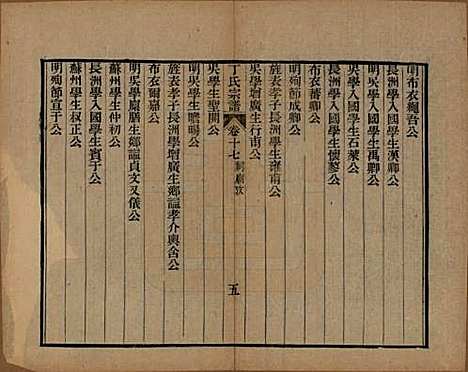 明布衣繩吾公
長洲學入國學生漢卿公
明吳學入國學生禹卿公
吳學入國學生石蒙公
長洲學入國學生懷蓼公
布衣蕃卿公
明殉節成卿公
旌表孝子長洲學生雍甫公
吳學增廣生行甫公
丁氏宗譜 卷十七 祠廟攷 五
吳學生聖開公
明吳學生曠暘公
布衣爾嘉公
旌表孝子長洲學增廣生鄉諡孝介輿含公
明吳學廩膳生鄉諡貞文又儀公
蘇州學生仲初公
長洲學入國學生賓于公
蘇州學生叔正公
明殉節宣于公